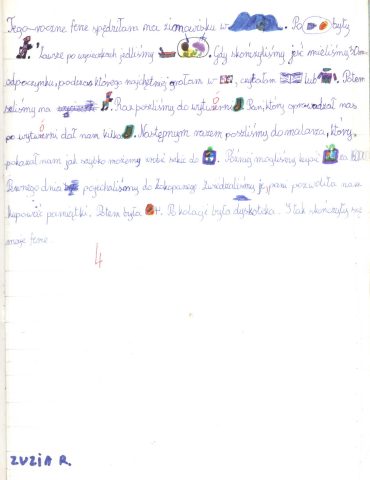 Tego-roczne ferie spędziłam na zimowisku w . Po były
. Zawsze po wycieczkach jedliśmy . Gdy skończyliśmy jeść mieliśmy
odpoczynku, podczas którego najchętniej grałam w , czytałam lub . Potem
szliśmy na . Raz poszliśmy do wytwórni . Pan, który oprowadzał nas
po wytwórni dał nam kilka . Następnym razem poszliśmy do malarza, który
pokazał nam jak szybko możemy zrobić szkic do . Później mogliśmy kupić za
Pewnego dnia pojechaliśmy do Zakopanego. Zwiedzaliśmy je, pani pozwoliła nam
kupować pamiątki. Potem była . Po kolacji była dyskoteka. I tak skończyły się
moje ferie.
4
ZUZIA R.